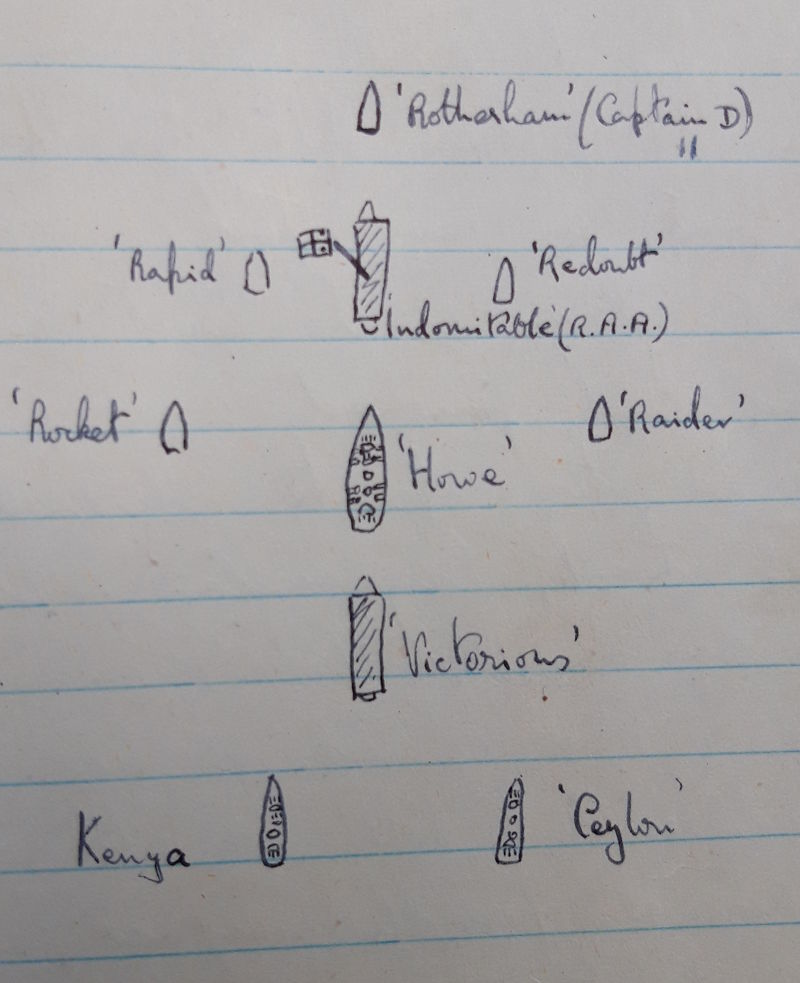 'Rotherham' (Captain D)
11
'Rapid' 'Redoubt'
Indomitable' (R.A.A.)
'Rocket' 'Raider'
'Howe'
'Victorious'
Kenya 'Ceylon'